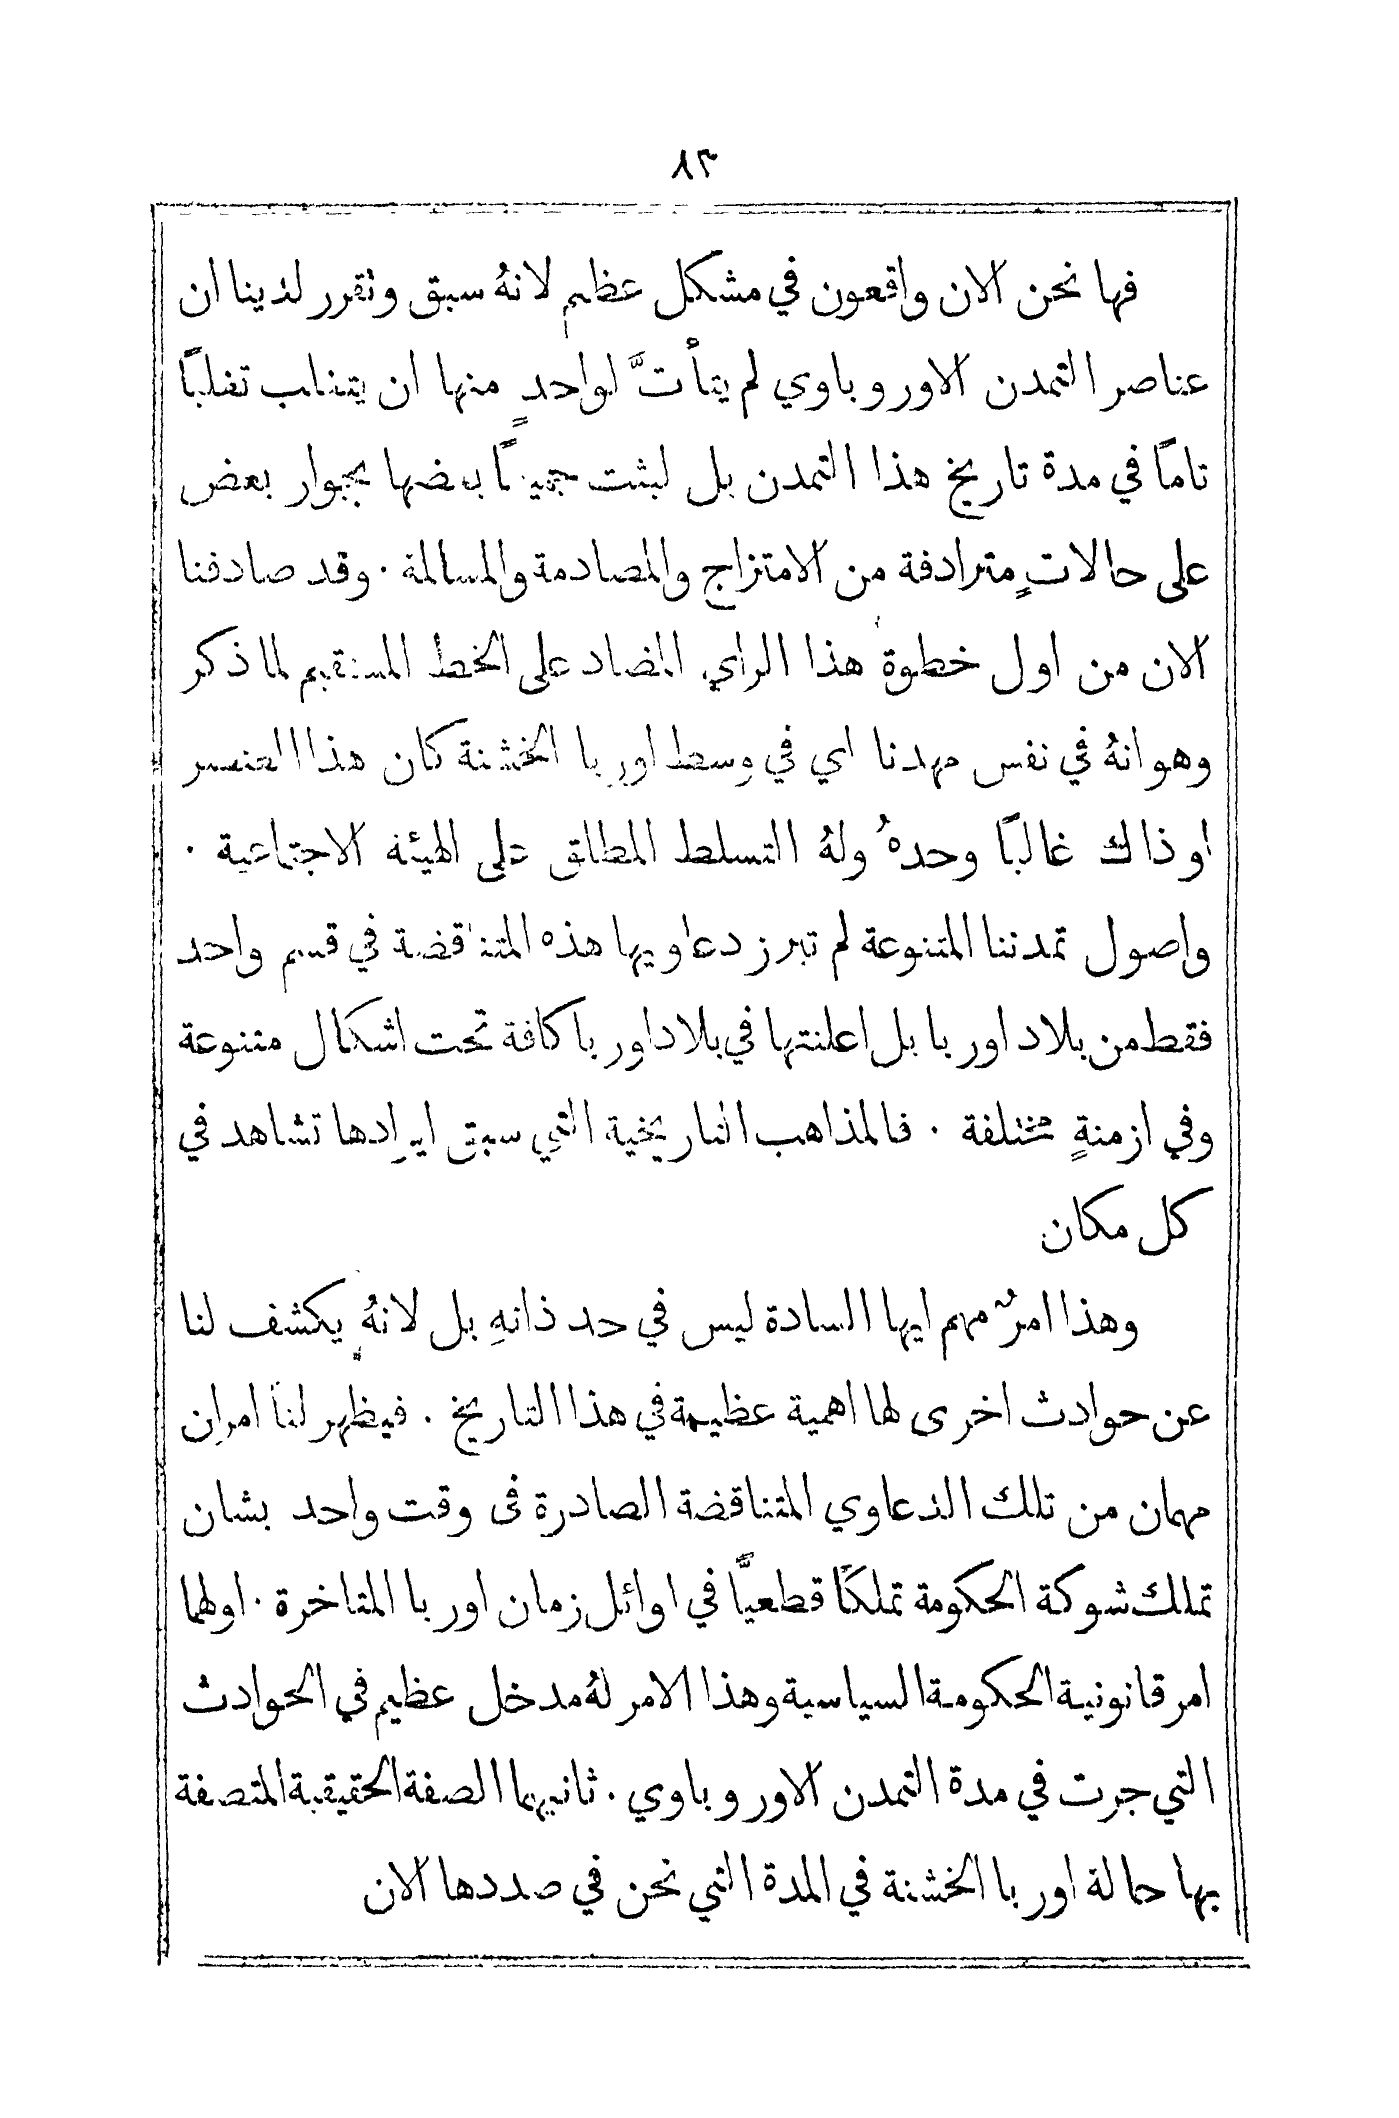 ٨٣
فها نحن الان واقعون في مشكل عظيم لانهُ سبق وتقرر لدينا ان
عناصر التمدن الاوروباوي لم يتأتَّ لواحدٍ منها ان يتغلب تغلبًا
تامًا في مدة تاريخ هذا التمدن بل لبثت جميعًا بعضها بجوار بعض
على حالاتٍ مترادفة من الامتزاج والمصادمة والمسالمة ٠ وقد صادفنا
الان من اول خطوة هذا الراي المضاد على الخط المستقيم لما ذكر
وهو انهُ في نفس مهدنا اي في وسط اوربا الخشنة كان هذا العنصر
او ذاك غالبًا وحدهُ ولهُ التسلط المطلق على الهيئة الاجتماعية ٠
واصول تمدننا المتنوعة لم تبرز دعاويها هذه المتناقضة في قسم واحد
فقط من بلاد اوربا بل اعلنتها في بلاد اوربا كافة تحت اشكال متنوعة
وفي ازمنةٍ مختلفة ٠ فالمذاهب التاريخية التي سبق ايرادها تشاهد في
كل مكان
وهذا امرٌ مهم ايها السادة ليس في حد ذاتهِ بل لانهُ يكشف لنا
عن حوادث اخرى لها اهمية عظيمة في هذا التاريخ ٠ فيظهر لنا امران
مهمان من تلك الدعاوي المتناقضة الصادرة في وقت واحد بشان
تملك شوكة الحكومة تملكًا قطعيًّا في اوائل زمان اوربا المتاخرة ٠ اولهما
امر قانونية الحكومة السياسية وهذا الامر لهُ مدخل عظيم في الحوادث
التي جرت في مدة التمدن الاوروباوي ٠ ثانيهما الصفة الحقيقية المتصفة
بها حالة اوربا الخشنة في المدة التي نحن في صددها الان